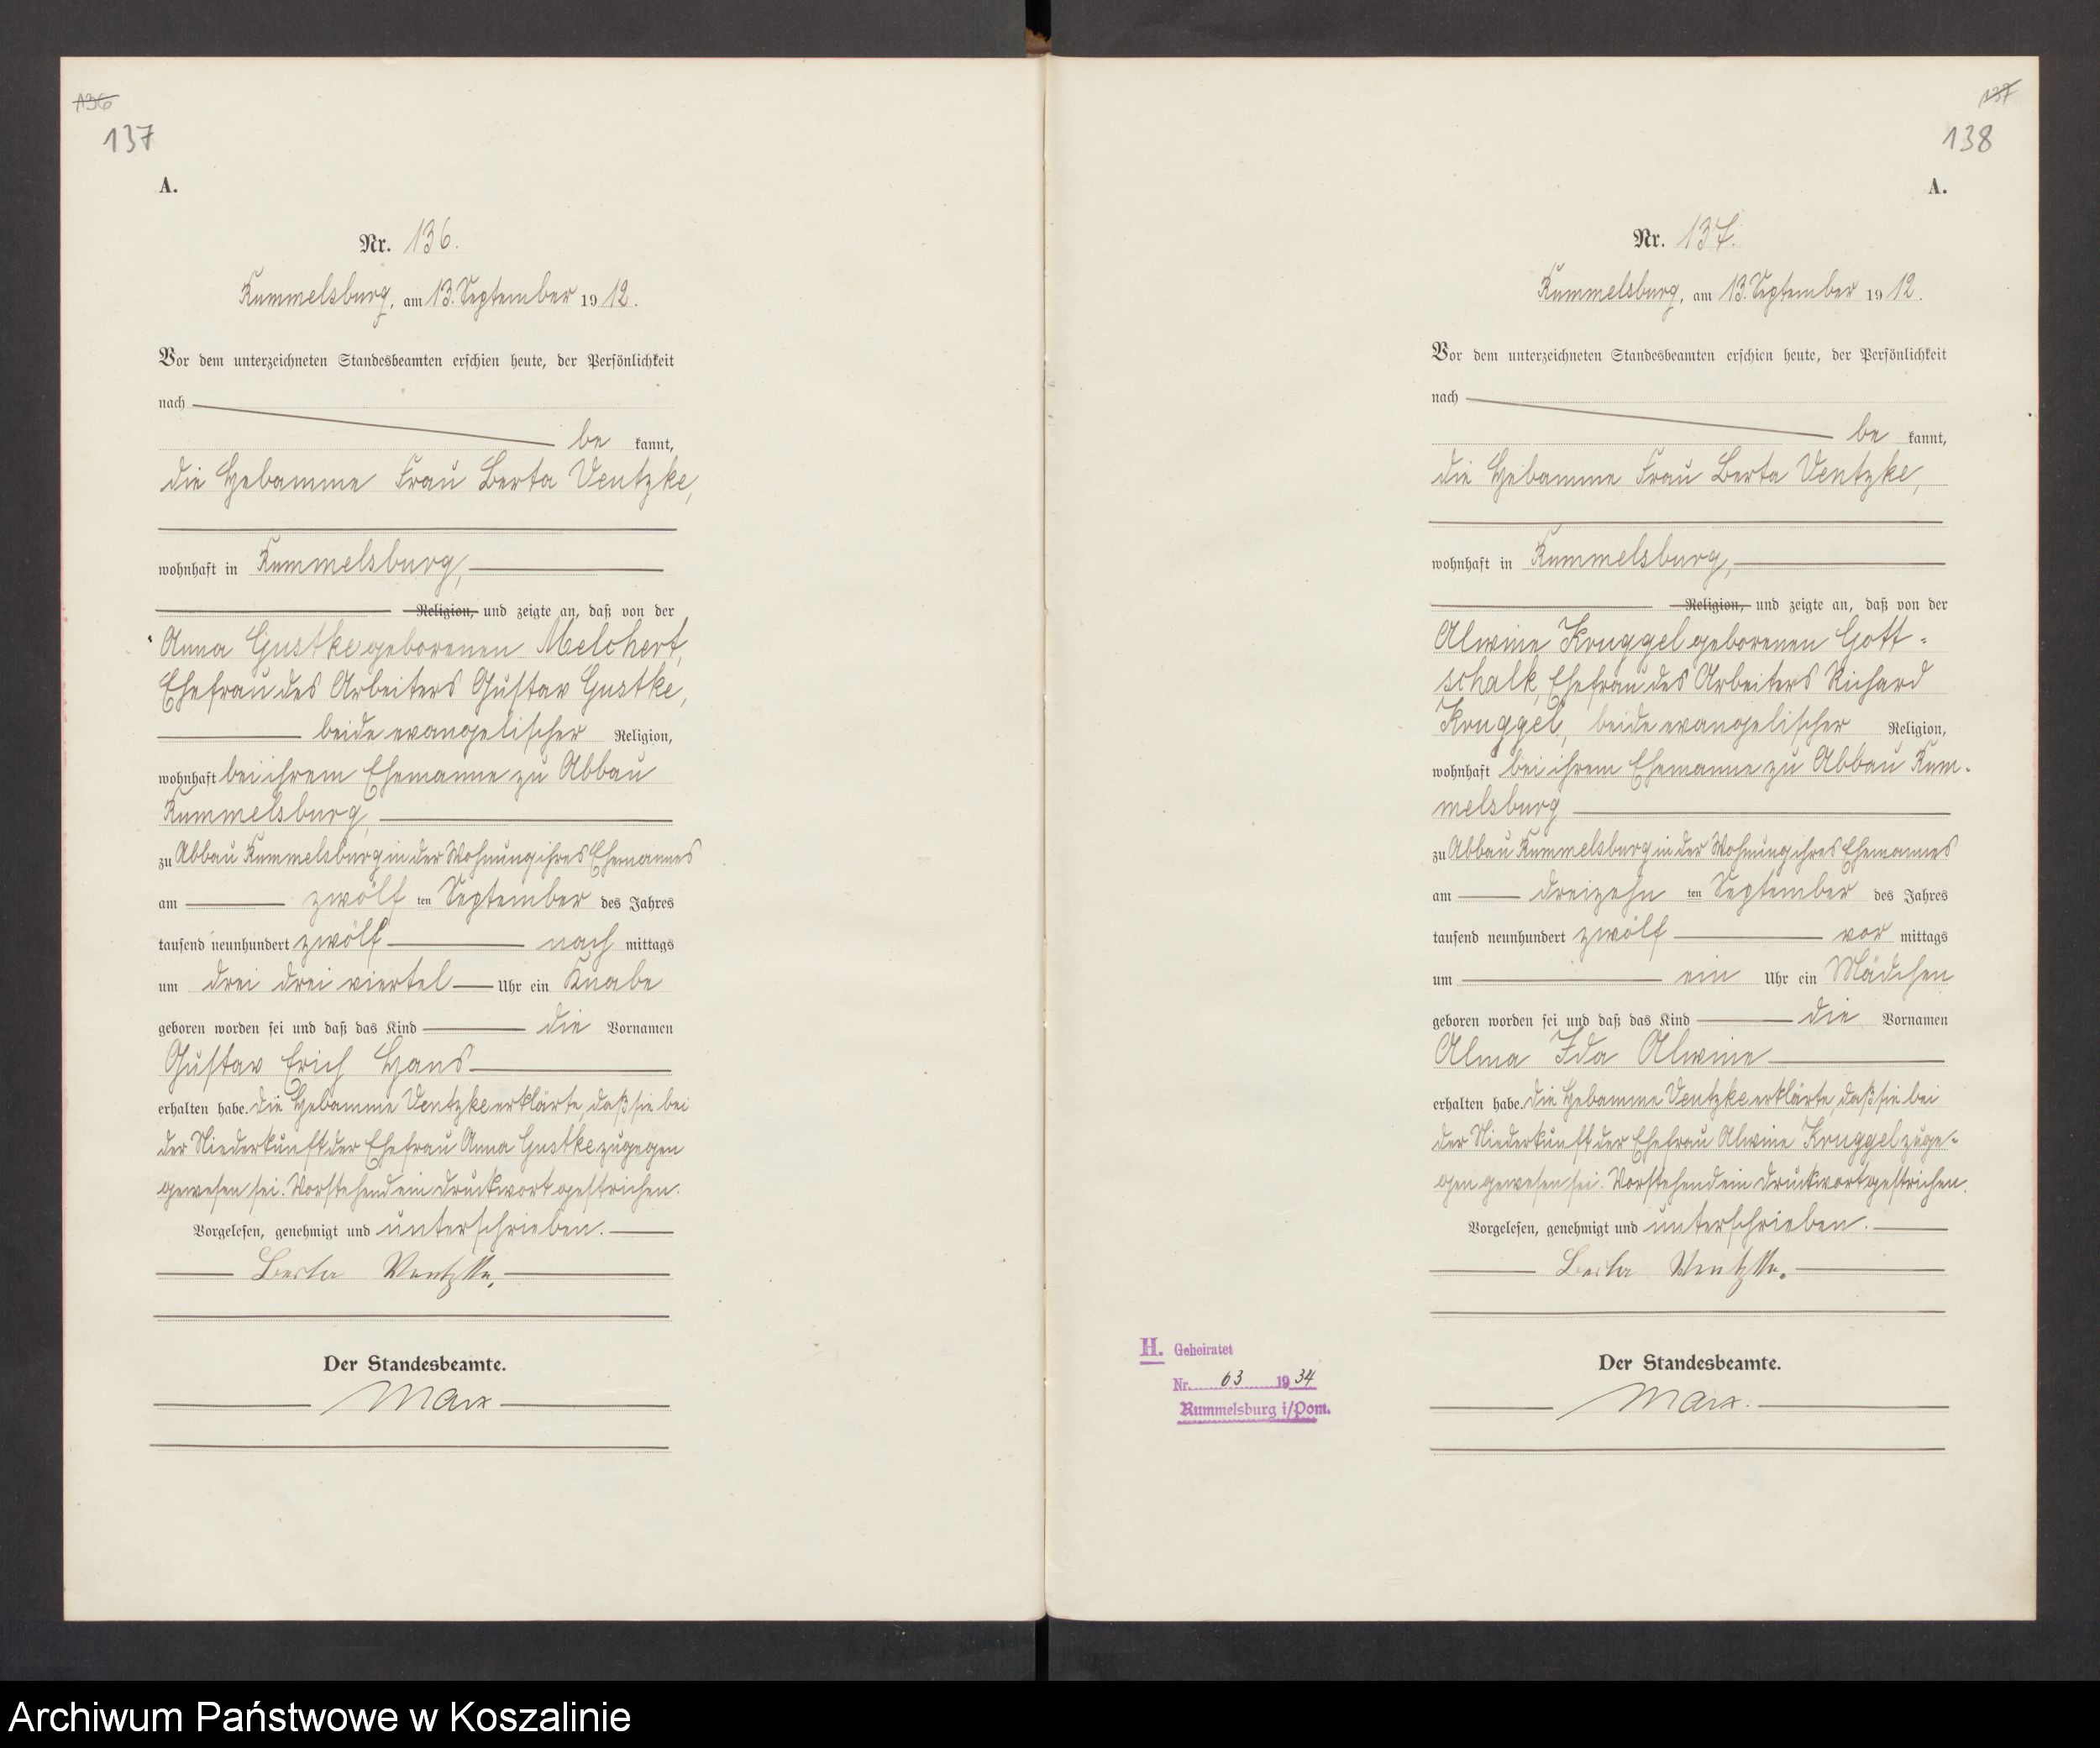 136
137
A.
Nr. 136.
Rummelsburg, am 13. September 1912.
Vor dem unterzeichneten Standesbeamten erschien heute, der Persönlichkeit
nach
be kannt,
die Hebamme Frau Berta Ventzke,
wohnhaft in Rummelsburg,
Religion, und zeigte an, daß von der
Anna Gustke geborenen Melchert,
Ehefrau des Arbeiters Gustav Gustke,
beide evangelischer Religion,
wohnhaft bei ihrem Ehemanne zu Abbau
Rummelsburg,
zu Abbau Rummelsburg in der Wohnung ihres Ehemannes
am zwölf ten September des Jahres
tausend neunhundert zwölf nach mittags
um drei drei viertel Uhr ein Knabe
geboren worden sei und daß das Kind die Vornamen
Gustav Erich Hans
erhalten habe. Die Hebamme Ventzke erklärte, daß sie bei
der Niederkunft der Ehefrau Anna Gustke zugegen
gewesen sei. Vorstehend ein Druckwort gestrichen.
Vorgelesen, genehmigt und unterschrieben.
Berta Ventzke.
Der Standesbeamte.
Marx
137
138
A.
Nr. 137.
Rummelsburg, am 13. September 1912.
Vor dem unterzeichneten Standesbeamten erschien heute, der Persönlichkeit
nach
be kannt,
die Hebamme Frau Berta Ventzke,
wohnhaft in Rummelsburg,
Religion, und zeigte an, daß von der
Alwine Kruggel geborenen Gott-
schalk, Ehefrau des Arbeiters Richard
Kruggel, beide evangelischer Religion,
wohnhaft bei ihrem Ehemanne zu Abbau Rum-
melsburg
zu Abbau Rummelsburg in der Wohnung ihres Ehemannes
am dreizehn ten September des Jahres
tausend neunhundert zwölf vor mittags
um ein Uhr ein Mädchen
geboren worden sei und daß das Kind die Vornamen
Alma Ida Alwine
erhalten habe. Die Hebamme Ventzke erklärte, daß sie bei
der Niederkunft der Ehefrau Alwine Kruggel zuge-
gen gewesen sei. Vorstehend ein Druckwort gestrichen.
Vorgelesen, genehmigt und unterschrieben.
Berta Ventzke.
Der Standesbeamte.
Marx.
H. Geheiratet
Nr. 63 1934
Rummelsburg i/Pom.
Archiwum Państwowe w Koszalinie